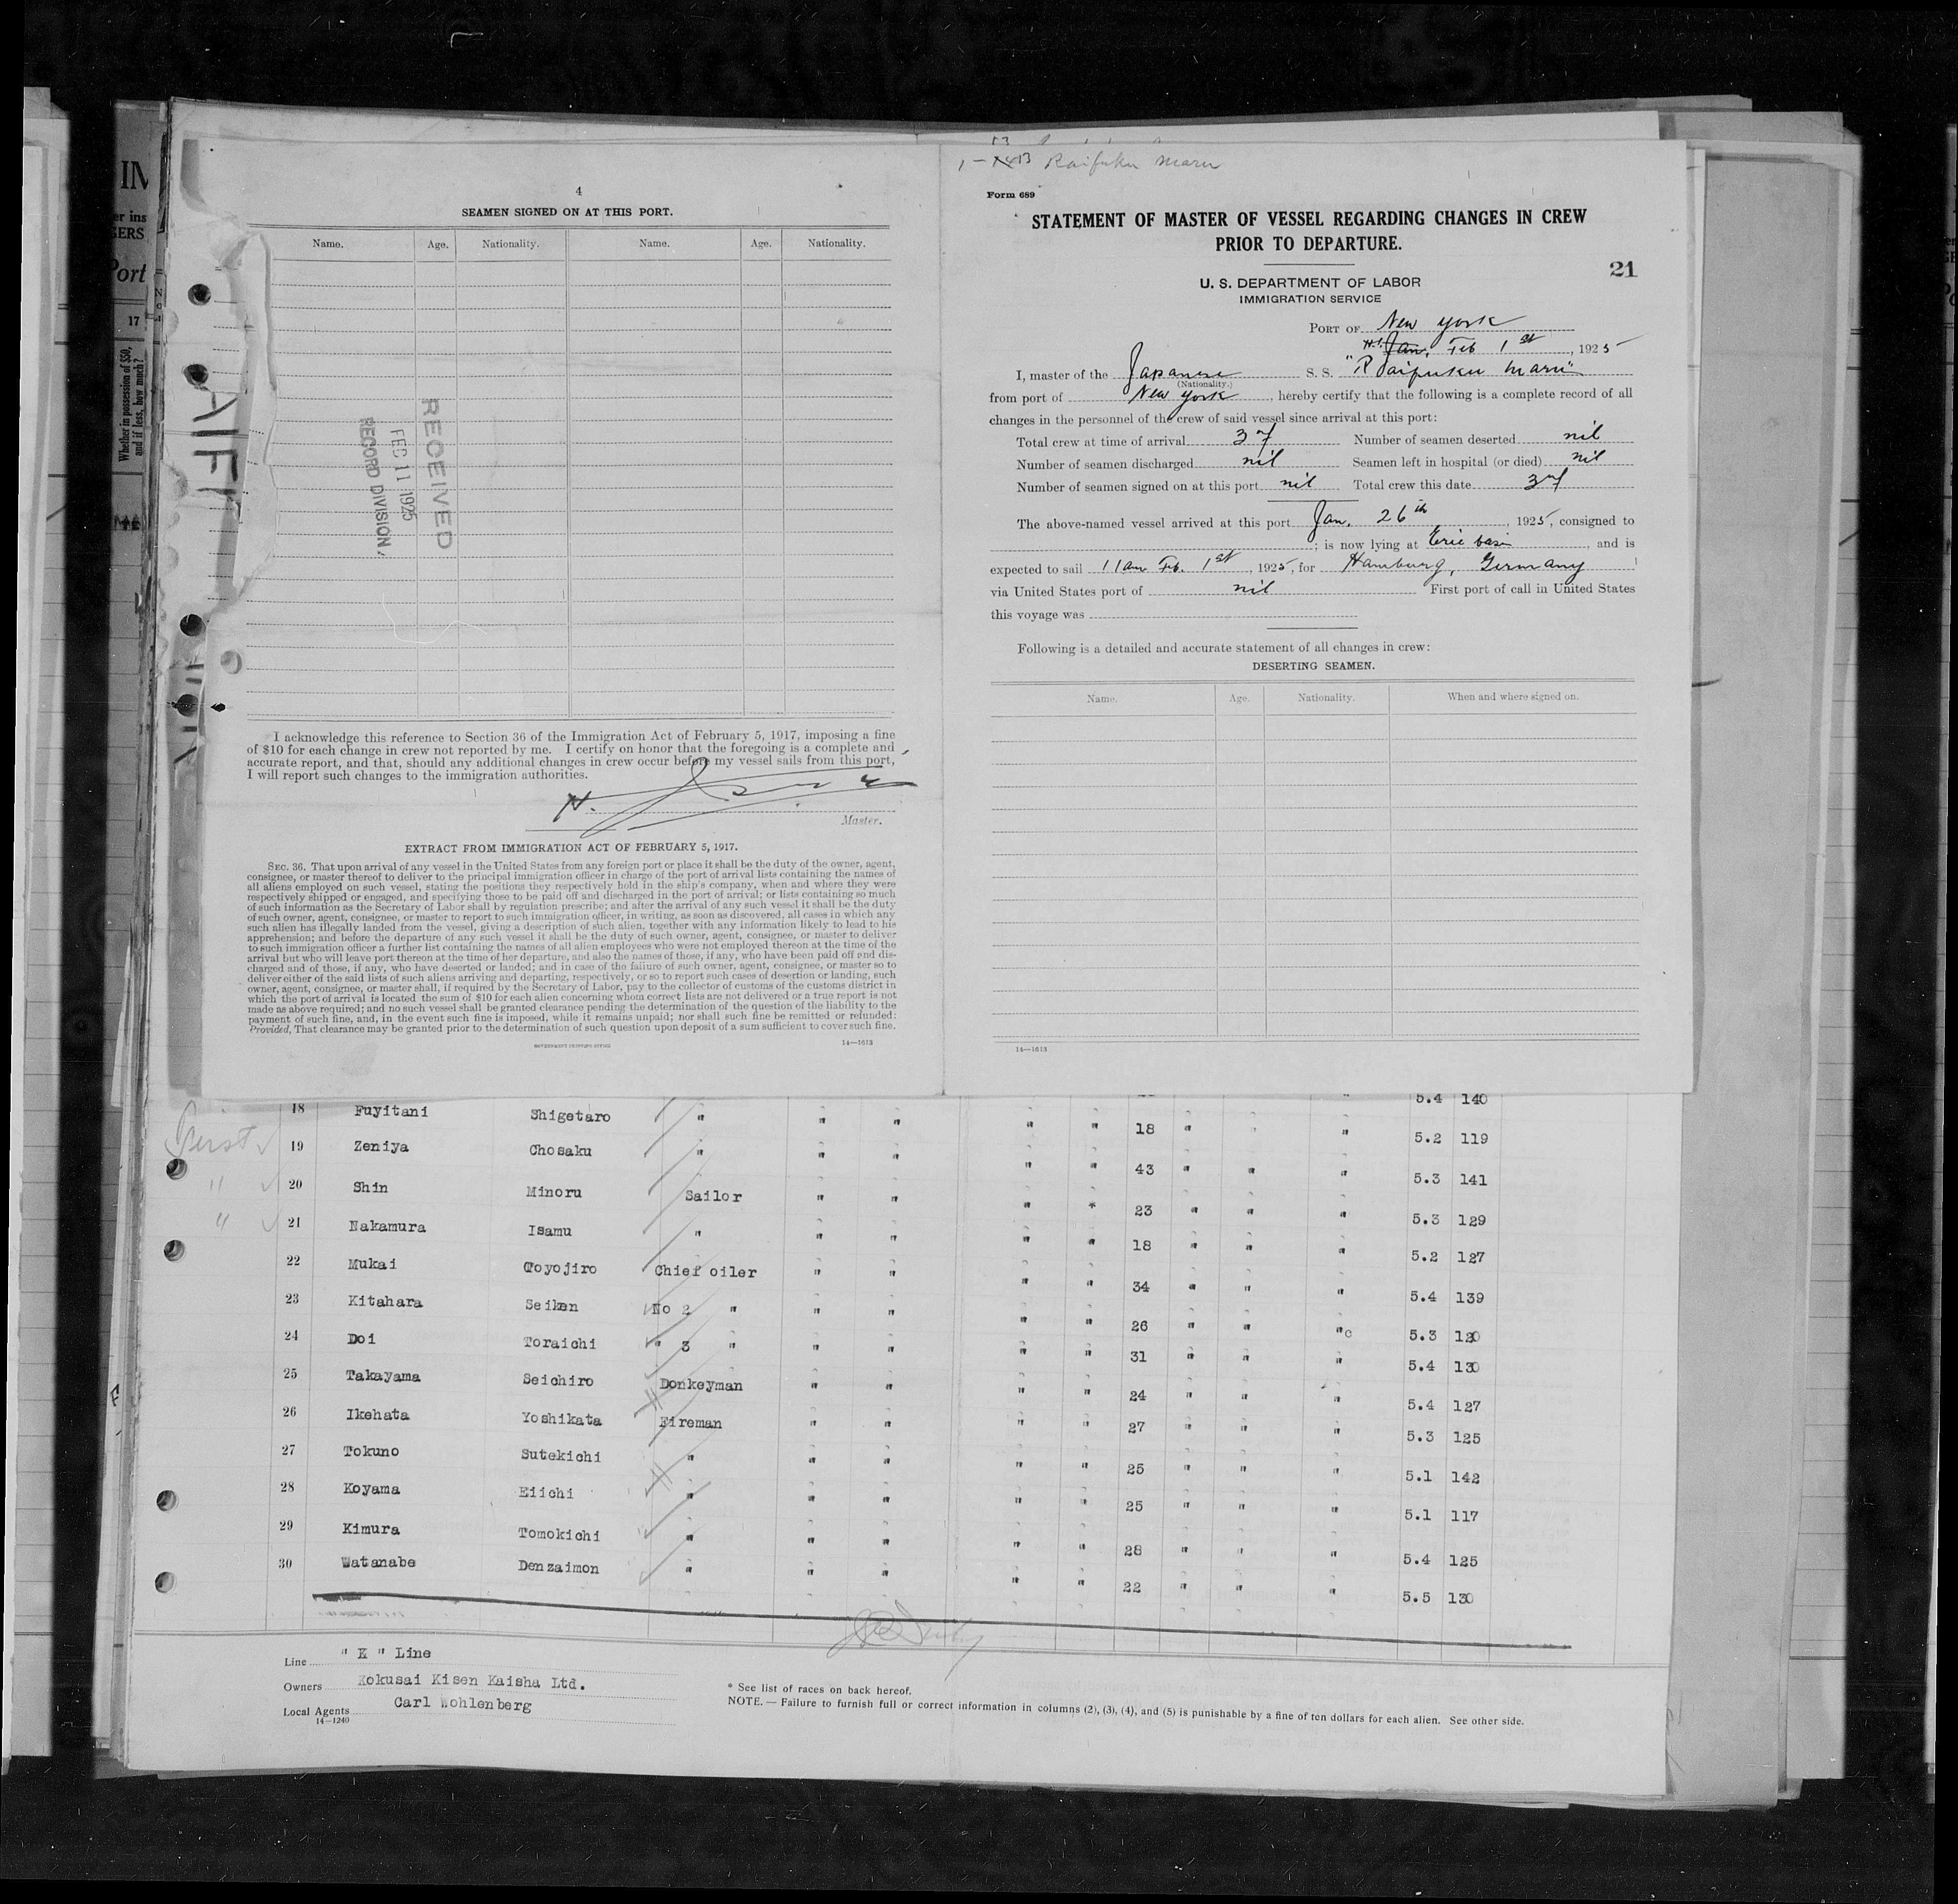 4
SEAMEN SIGNED ON AT THIS PORT.
Name. Age. Nationality. Name. Age. Nationality.
RECEIVED
FEB 11 1925
RECORD DIVISION.
I acknowledge this reference to Section 36 of the Immigration Act of February 5, 1917, imposing a fine
of $10 for each change in crew not reported by me. I certify on honor that the foregoing is a complete and
accurate report, and that, should any additional changes in crew occur before my vessel sails from this port,
I will report such changes to the immigration authorities.
Master.
EXTRACT FROM IMMIGRATION ACT OF FEBRUARY 5, 1917.
SEC. 36. That upon arrival of any vessel in the United States from any foreign port or place it shall be the duty of the owner, agent,
consignee, or master thereof to deliver to the principal immigration officer in charge of the port of arrival lists containing the names of
all aliens employed on such vessel, stating the positions they respectively hold in the ship's company, when and where they were
respectively shipped or engaged, and specifying those to be paid off and discharged in the port of arrival; or lists containing so much
of such information as the Secretary of Labor shall by regulation prescribe; and after the arrival of any such vessel it shall be the duty
of such owner, agent, consignee, or master to report to such immigration officer, in writing, as soon as discovered, all cases in which any
such alien has illegally landed from the vessel, giving a description of such alien, together with any information likely to lead to his
apprehension; and before the departure of any such vessel it shall be the duty of such owner, agent, consignee, or master to deliver
to such immigration officer a further list containing the names of all alien employees who were not employed thereon at the time of the
arrival but who will leave port thereon at the time of her departure, and also the names of those, if any, who have been paid off and dis-
charged and of those, if any, who have deserted or landed; and in case of the failure of such owner, agent, consignee, or master so to
deliver either of the said lists of such aliens arriving and departing, respectively, or so to report such cases of desertion or landing, such
owner, agent, consignee, or master shall, if required by the Secretary of Labor, pay to the collector of customs of the customs district in
which the port of arrival is located the sum of $10 for each alien concerning whom correct lists are not delivered or a true report is not
made as above required; and no such vessel shall be granted clearance pending the determination of the question of the liability to the
payment of such fine, and, in the event such fine is imposed, while it remains unpaid; nor shall such fine be remitted or refunded:
Provided, That clearance may be granted prior to the determination of such question upon deposit of a sum sufficient to cover such fine.
GOVERNMENT PRINTING OFFICE 14—1613
Raifuku Maru
Form 689
STATEMENT OF MASTER OF VESSEL REGARDING CHANGES IN CREW
PRIOR TO DEPARTURE.
21
U. S. DEPARTMENT OF LABOR
IMMIGRATION SERVICE
PORT OF New York
Jan. Feb 1st, 1925
I, master of the Japanese S. S. "Raifuku Maru"
(Nationality.)
from port of New York, hereby certify that the following is a complete record of all
changes in the personnel of the crew of said vessel since arrival at this port:
Total crew at time of arrival 37 Number of seamen deserted nil
Number of seamen discharged nil Seamen left in hospital (or died) nil
Number of seamen signed on at this port nil Total crew this date 37
The above-named vessel arrived at this port Jan. 26th, 1925, consigned to
; is now lying at Erie basin, and is
expected to sail 11am Feb. 1st, 1925, for Hamburg, Germany
via United States port of nil First port of call in United States
this voyage was
Following is a detailed and accurate statement of all changes in crew:
DESERTING SEAMEN.
Name. Age. Nationality. When and where signed on.
14—1613
5.4 140
18 Fuyitani Shigetaro " " " " " 18 " " 5.2 119
First 19 Zeniya Chosaku " " " " " 43 " " " 5.3 141
" 20 Shin Minoru Sailor " " " * 23 " " " 5.3 129
" 21 Nakamura Isamu " " " " " 18 " " " 5.2 127
22 Mukai Toyojiro Chief oiler " " " " 34 " " " 5.4 139
23 Kitahara Seiken No 2 " " " " " 26 " " " 5.3 120
24 Doi Toraichi " 3 " " " " " 31 " " " 5.4 130
25 Takayama Seichiro Donkeyman " " " " 24 " " " 5.4 127
26 Ikehata Yoshikata Fireman " " " " 27 " " " 5.3 125
27 Tokuno Sutekichi " " " " " 25 " " " 5.1 142
28 Koyama Eiichi " " " " " 25 " " " 5.1 117
29 Kimura Tomokichi " " " " " 28 " " " 5.4 125
30 Watanabe Denzaimon " " " " " 22 " " " 5.5 130
Line " K " Line
Owners Kokusai Kisen Kaisha Ltd.
Local Agents Carl Wohlenberg
14—1240
* See list of races on back hereof.
NOTE.—Failure to furnish full or correct information in columns (2), (3), (4), and (5) is punishable by a fine of ten dollars for each alien. See other side.